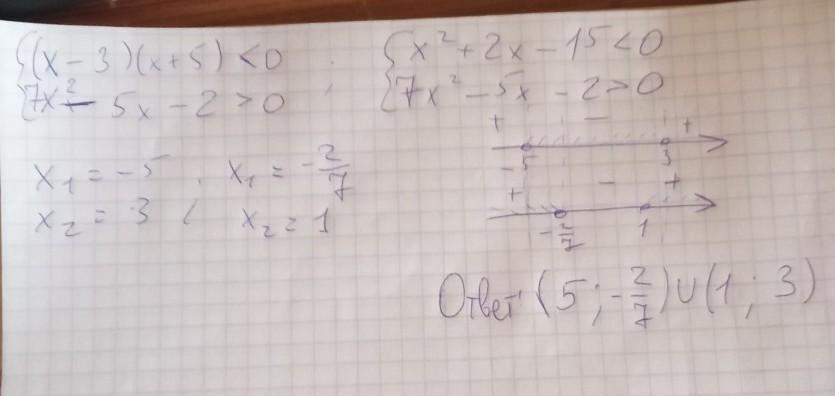 {(x - 3)(x + 5) < 0
{7x² - 5x - 2 > 0 ;
{x² + 2x - 15 < 0
{7x² - 5x - 2 > 0
x₁ = -5 , x₁ = -2/7
x₂ = 3 ; x₂ = 1
+ - +
-5 3
+ - +
-2/7 1
Ответ (5 ; -2/7) ∪ (1 ; 3)